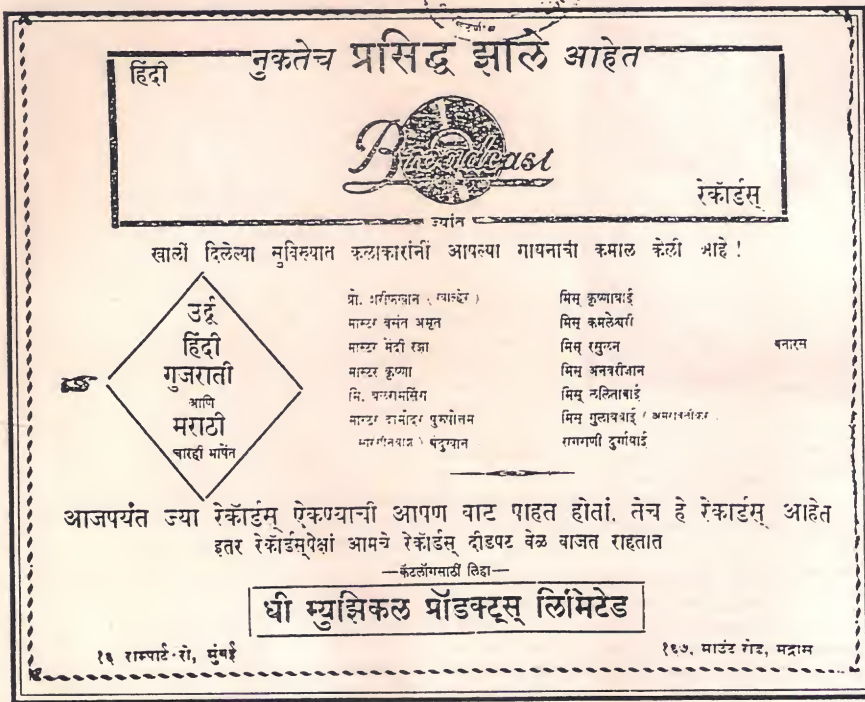 नुकतेच प्रसिद्ध झाले आहेत
हिंदी
Broadcast
रेकॉर्डस्
ज्यांत
खालीं दिलेल्या सुविख्यात कलाकारांनीं आपल्या गायनाची कमाल केली आहे !
उर्दू
हिंदी
गुजराती
आणि
मराठी
चारही भाषेंत
प्रो.
मास्टर वसंत अमृत
मास्टर मेंदी रझा
मास्टर कृष्णा
मि. बलरामसिंग
मास्टर दामोदर पुरुषोत्तम
बंदुखान
मिस् कृष्णाबाई
मिस् कमलेश्वरी
मिस् रसुलन बनारस
मिस् अनवरीजान
मिस् ललिताबाई
मिस् गुलाबबाई ( अमरावतीकर )
रागगणी दुर्गाबाई
आजपर्यंत ज्या रेकॉर्डस् ऐकण्याची आपण वाट पाहत होतां. तेच हे रेकार्डस् आहेत
इतर रेकॉर्डस्‌पेक्षां आमचे रेकॉर्डस् दीडपट वेळ वाजत राहतात
—कॅटलॉगसाठीं लिहा—
धी म्युझिकल प्रॉडक्ट्स् लिमिटेड
१६ राम्पार्ट रो, मुंबई
१६७, माउंट रोड, मद्रास